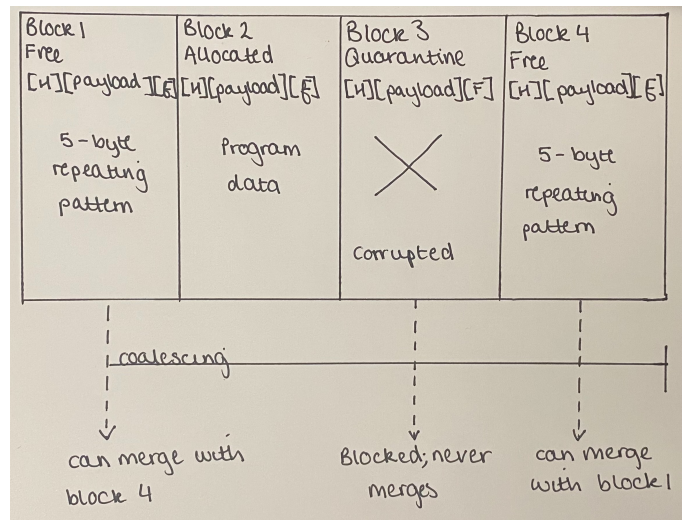 Block 1
Free
[H][payload][F]
5-byte
repeating
pattern
Block 2
Allocated
[H][payload][F]
Program
data
Block 3
Quarantine
[H][payload][F]
corrupted
Block 4
Free
[H][payload][F]
5-byte
repeating
pattern
coalescing
can merge with
block 4
Blocked; never
merges
can merge
with block 1